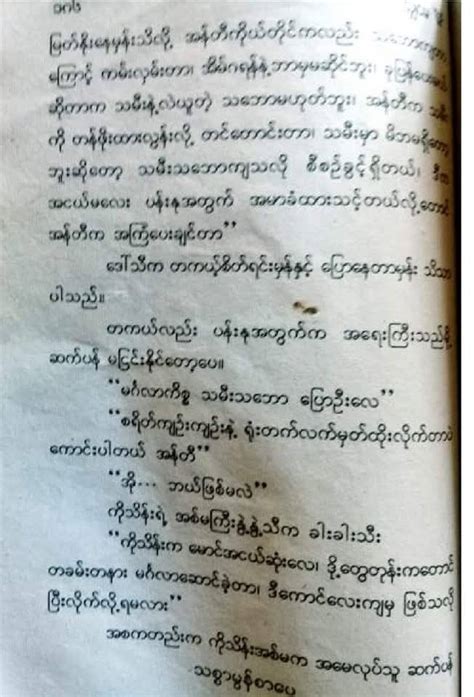 ၁၈၆
မြတ်နိုးနေမှန်းသိလို့ အန်တီကိုယ်တိုင်ကလည်း သဘောကျတာ
ကြောင့် ကမ်းလှမ်းတာ၊ အိမ်ဂရန်နဲ့ဘာမှမဆိုင်ဘူး၊ ခုပြန်ပေးမယ်
ဆိုကာက သမီးနဲ့လဲယူတဲ့ သဘောမဟုတ်ဘူး၊ အန်တီက သမီး
ကို တန်ဖိုးထားလွန်းလို့ တင်တောင်းတာ၊ သမီးမှာ မိဘမရှိတော့
ဘူးဆိုတော့ သမီးသဘောကျသလို စီစဉ်ခွင့်ရှိတယ်၊ ဒီက
အငယ်မလေး ပန်းနုအတွက် အမာခံထားသင့်တယ်လို့တောင်
အန်တီက အကြံပေးချင်တာ”
ဒေါ်သီက တကယ့်စိတ်ရင်းမှန်နှင့် ပြောနေတာမှန်း သိသာ
ပါသည်။
တကယ်လည်း ပန်းနုအတွက်က အရေးကြီးသည်မို့
ဆက်ပန် မငြင်းနိုင်တော့ပေ။
“မင်္ဂလာကိစ္စ သမီးသဘော ပြောဦးလေ”
“စရိတ်ကျဉ်းကျဉ်းနဲ့ ရုံးတက်လက်မှတ်ထိုးလိုက်တာပဲ
ကောင်းပါတယ် အန်တီ”
“အို... ဘယ်ဖြစ်မလဲ”
ကိုသိန်းရဲ့ အစ်မကြီးနွဲ့နွဲ့သီက ခါးခါးသီး
“ကိုသိန်းက မောင်အငယ်ဆုံးလေ၊ ဒို့တွေတုန်းကတောင်
တခမ်းတနား မင်္ဂလာဆောင်ခဲ့တာ၊ ဒီကောင်လေးကျမှ ဖြစ်သလို
ပြီးလိုက်လို့ရမလား”
အစကတည်းက ကိုသိန်းအစ်မက အမေလုပ်သူ ဆက်ပန်
သစ္စာမွန်စာပေ